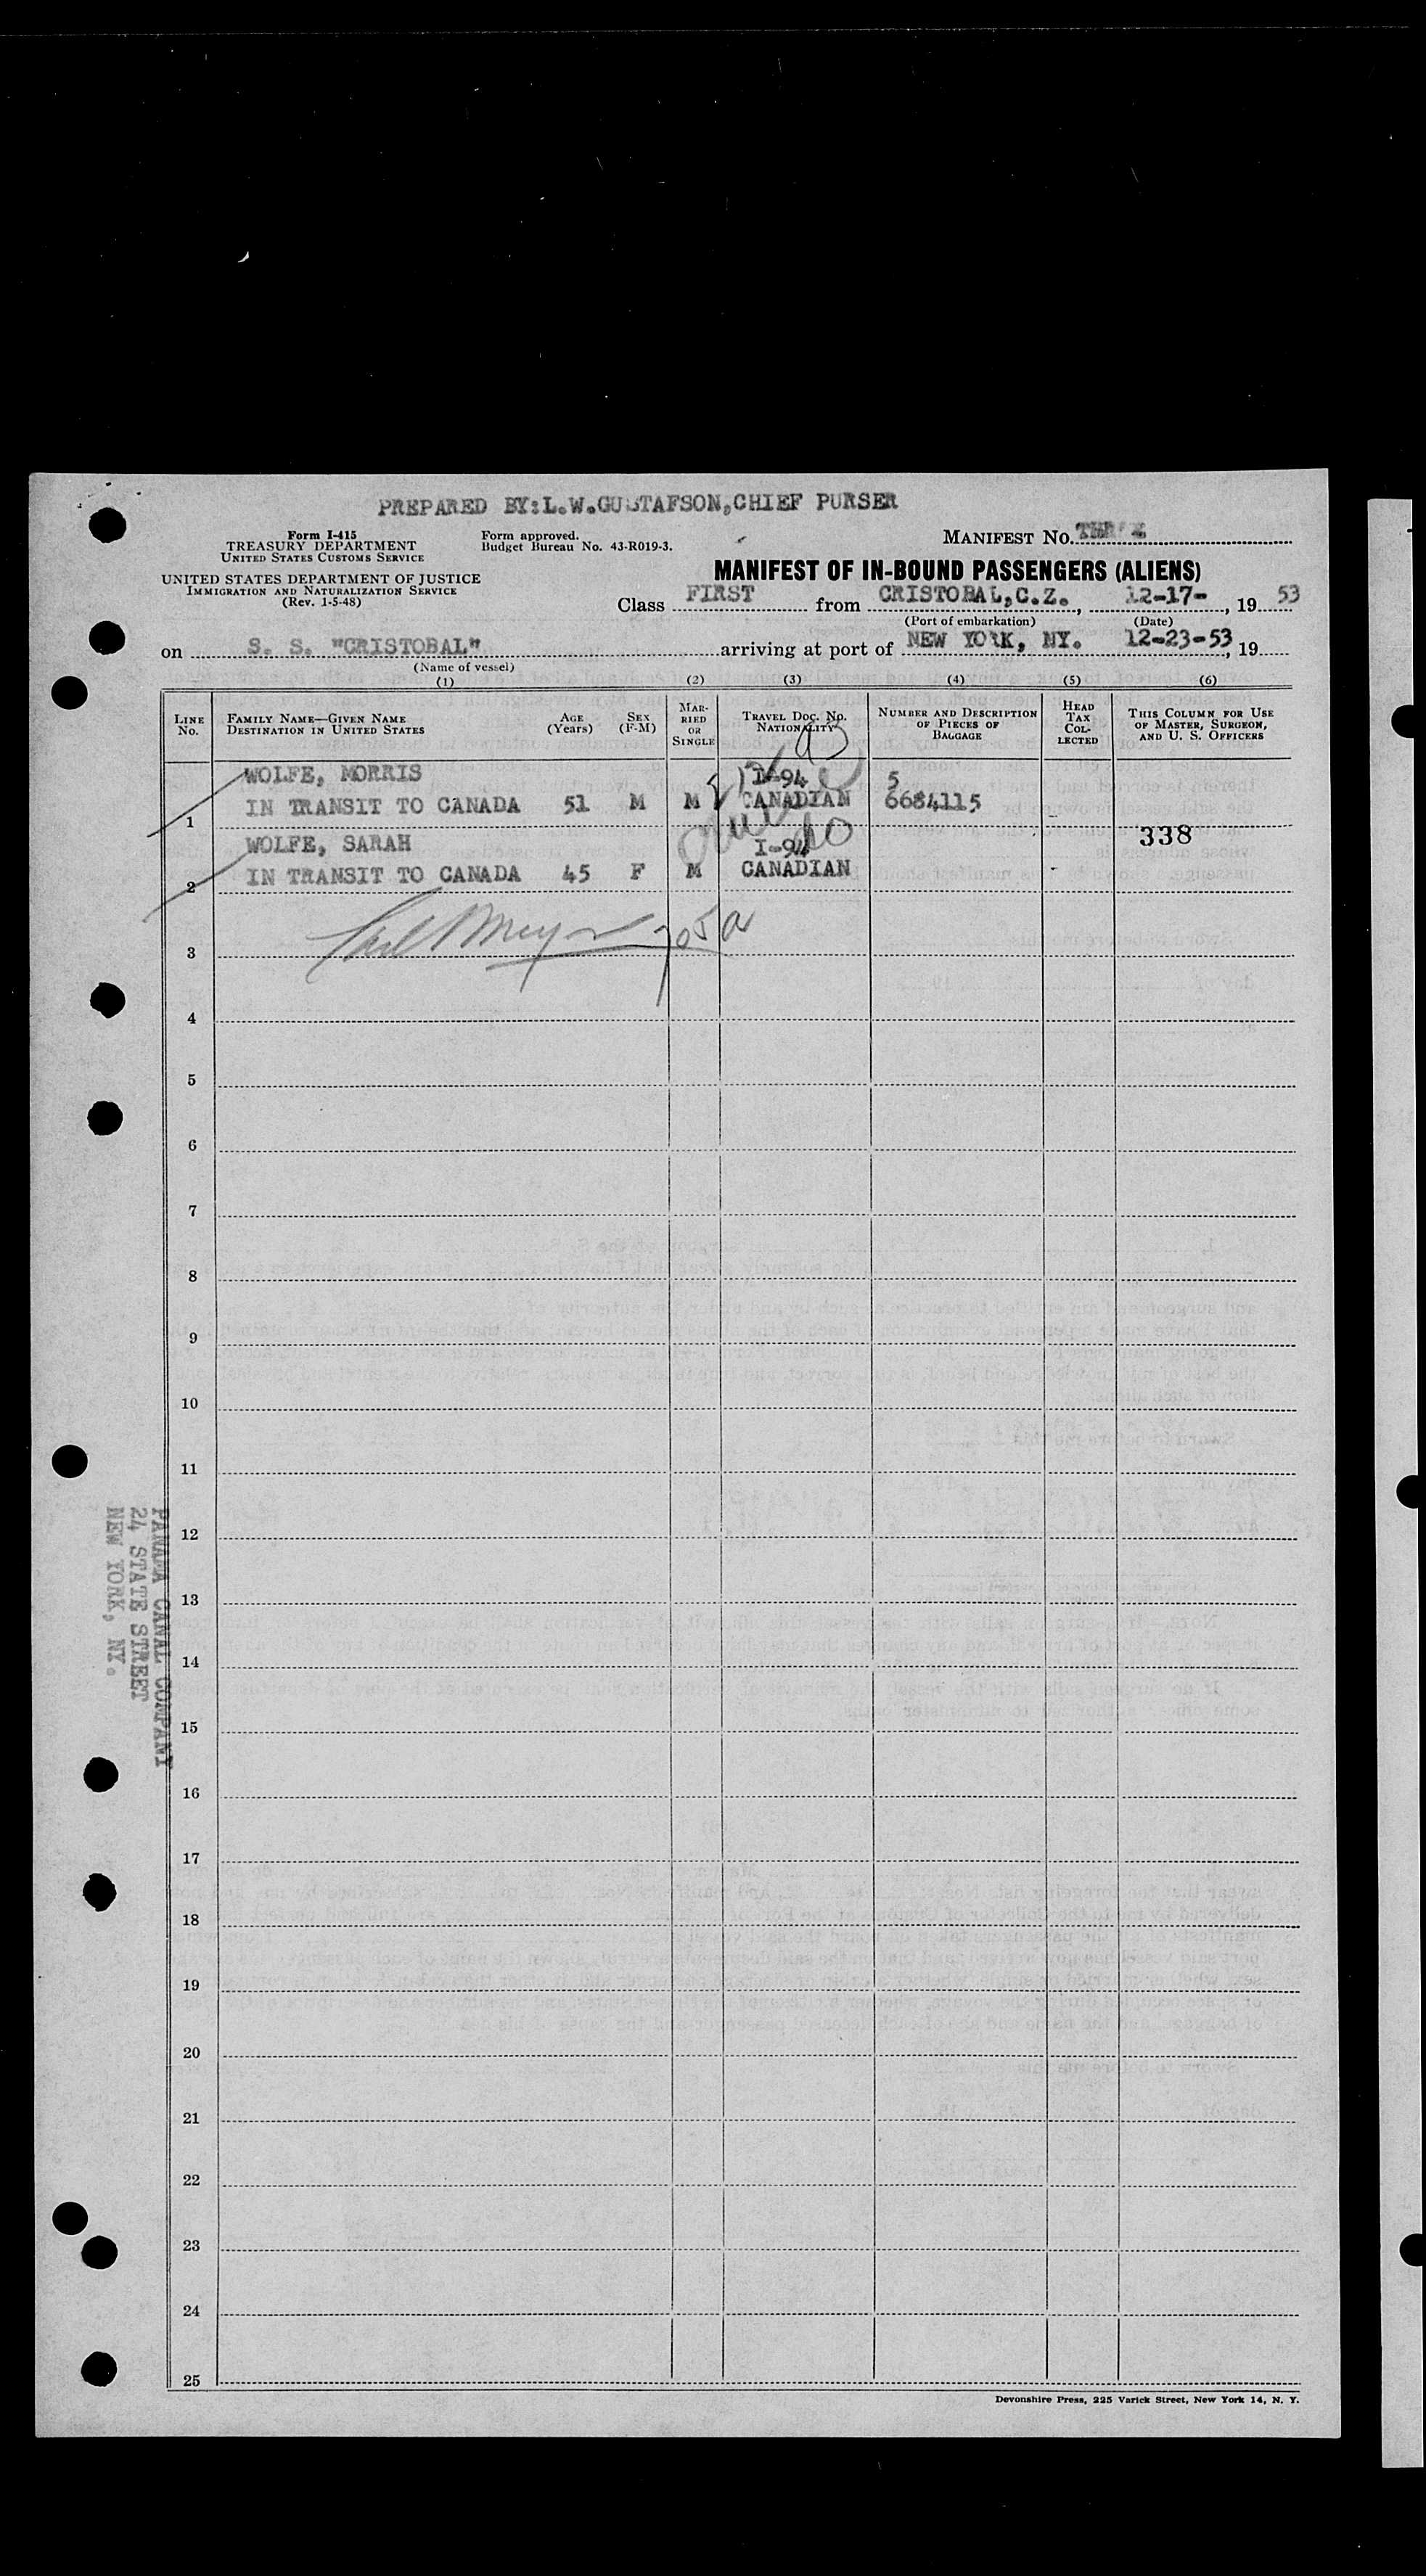 PREPARED BY:L.W.GUSTAFSON,CHIEF PURSER
Form I-415
TREASURY DEPARTMENT
UNITED STATES CUSTOMS SERVICE
UNITED STATES DEPARTMENT OF JUSTICE
IMMIGRATION AND NATURALIZATION SERVICE
(Rev. 1-5-48)
Form approved.
Budget Bureau No. 43-R019-3.
MANIFEST NO.
MANIFEST OF IN-BOUND PASSENGERS (ALIENS)
Class FIRST from CRISTOBAL,C.Z., 12-17-, 19 53
(Port of embarkation) (Date)
on S. S. "CRISTOBAL" arriving at port of NEW YORK, NY. 12-23-53, 19
(Name of vessel)
(1) (2) (3) (4) (5) (6)
LINE NO. FAMILY NAME—GIVEN NAME DESTINATION IN UNITED STATES AGE (Years) SEX (F-M) MARRIED OR SINGLE TRAVEL DOC. NO. NATIONALITY NUMBER AND DESCRIPTION OF PIECES OF BAGGAGE HEAD TAX COLLECTED THIS COLUMN FOR USE OF MASTER, SURGEON, AND U. S. OFFICERS
WOLFE, MORRIS I-94 5
1 IN TRANSIT TO CANADA 51 M M CANADIAN 6684115
WOLFE, SARAH I-94 338
2 IN TRANSIT TO CANADA 45 F M CANADIAN
3
4
5
6
7
8
9
10
11
12
13
14
15
16
17
18
19
20
21
22
23
24
25
PANAMA CANAL COMPANY
24 STATE STREET
NEW YORK, NY.
Devonshire Press, 225 Varick Street, New York 14, N. Y.